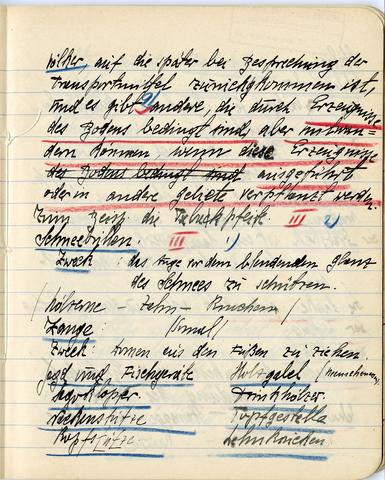 völker, auf die später bei Besprechung der
Transportmittel zurückgekommen ist,
und es gibt 2) andere, die durch Erzeugnisse
des Bodens bedingt sind, aber
dern können, wenn diese Erzeugnisse
des Bodens bedingt sind ausgeführt
oder in andere gebiete verpflanzt werden.
Zum Beisp. die Tabackpfeife. III 2)
Schneebrillen. III 1)
Zweck: das Auge vor dem blendenden glanz
des Schnees zu schützen.
/hölzerne - Zehn - Knochen/
Zange: /
Zweck dornen aus den Füßen zu ziehen.
Jagd und Fischgeräte Holzgabel (
Trinkhölzer
Topfgestelle
Kopfstütze